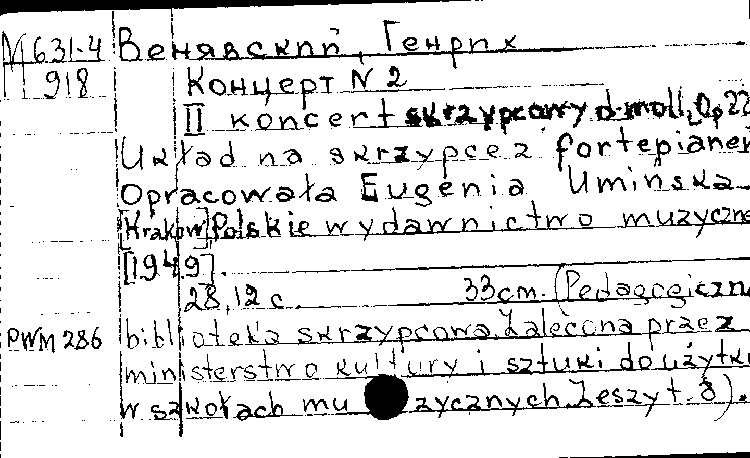 М631-4 Венявский, Генрих
918 Концерт N 2
II koncert skrzypcowy d-moll, Op 22
Układ na skrzypce z fortepianem
Opracowała Eugenia Umińska
[Kraków] Polskie wydawnictwo muzyczne
[1949].
28, 12 с. 33cm. (Pedagogiczna
PWM 286 biblioteka skrzypcowa. Zalecona przez
ministerstwo kultury i sztuki do użytku
w szkołach mu zycznych. Zeszyt. 8).